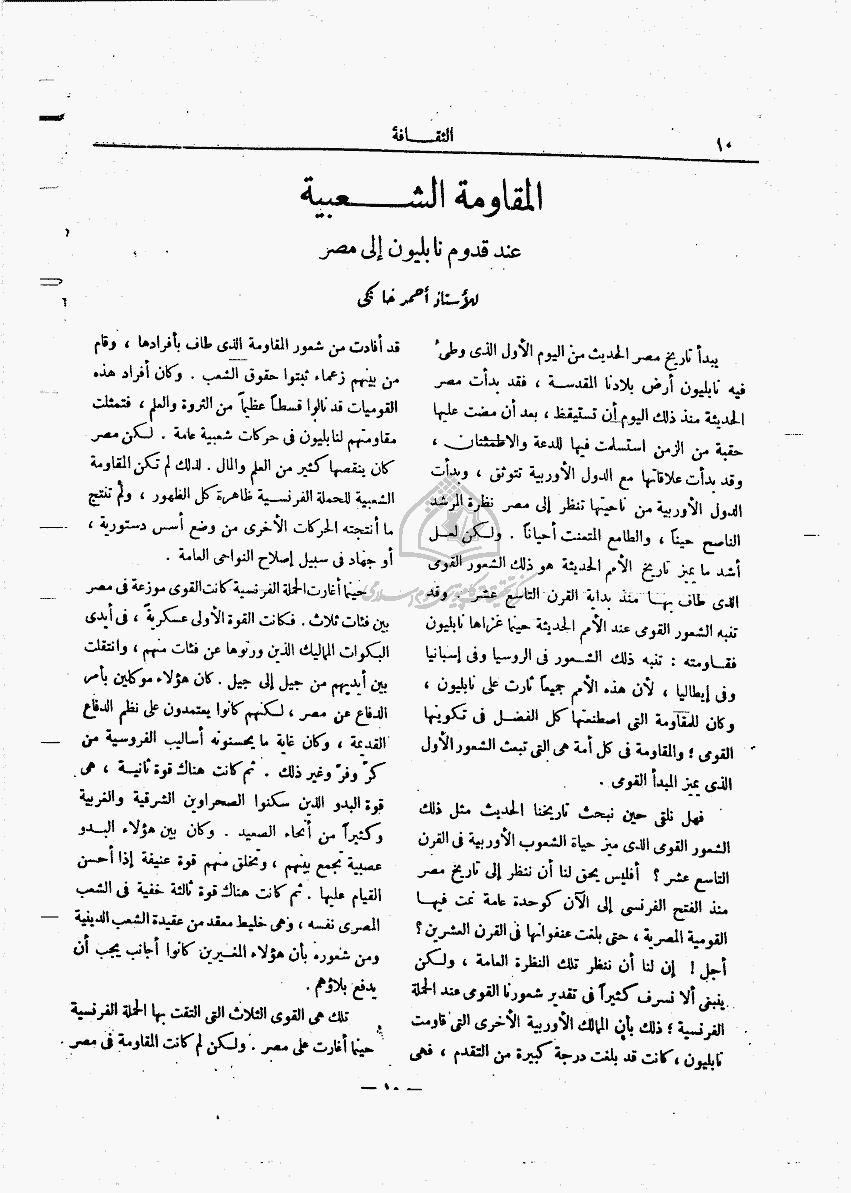 ١٠
الثقـــافة
المقاومة الشـــعبية
عند قدوم نابليون إلى مصر
للأستاذ أحمد خاكى
يبدأ تاريخ مصر الحديث من اليوم الأول الذى وطىء
فيه نابليون أرض بلادنا المقدسة ، فقد بدأت مصر
الحديثة منذ ذلك اليوم أن تستيقظ ، بعد أن مضت عليها
حقبة من الزمن استسلمت فيها للدعة والاطمئنان ،
وقد بدأت علاقاتها مع الدول الأوربية تتوثق ، وبدأت
الدول الأوربية من ناحيتها تنظر إلى مصر نظرة المرشد
الناصح حيناً ، والطامع المتعنت أحياناً . ولكن لعل
أشد ما يميز تاريخ الأمم الحديثة هو ذلك الشعور القومى
الذى طاف بهـا منذ بداية القرن التاسع عشر . وقد
تنبه الشعور القومى عند الأمم الحديثة حينما غزاها نابليون
فقـاومته : تنبه ذلك الشـعور فى الروسيا وفى إسبانيا
وفى إيطاليا ، لأن هذه الأمم جميعاً ثارت على نابليون ،
وكان للمقاومة التى اصطنعتها كل الفضـل فى تكوينها
القومى ؛ والمقاومة فى كل أمة هى التى تبعث الشعور الأول
الذى يميز المبدأ القومى .
فهل نلقى حين نبحث تاريخنا الحديث مثل ذلك
الشعور القومى الذى ميز حياة الشعوب الأوربية فى القرن
التاسع عشر ؟ أفليس يحق لنا أن ننظر إلى تاريخ مصر
منذ الفتح الفرنسى إلى الآن كوحدة عامة نمت فيهـا
القومية المصرية ، حتى بلغت عنفوانها فى القرن العشرين ؟
أجل ! إن لنا أن ننظر تلك النظرة العامة ، ولـكن
ينبغى ألا نسرف كثيراً فى تقدير شعورنا القومى عند الحملة
الفرنسية ؛ ذلك بأن الممالك الأوربية الأخرى التى قاومت
نابليون ، كانت قد بلغت درجة كبيرة من التقدم ، فهى
قد أفادت من شعور المقاومة الذى طاف بأفرادها ، وقام
من بينهم زعماء ثبتوا حقوق الشعب . وكان أفراد هذه
القوميات قد نالوا قسطاً عظيماً من الثروة والعلم ، فتمثلت
مقاومتهم لنابليون فى حركات شعبية عامة . لـكن مصر
كان ينقصها كثير من العلم والمال . لذلك لم تكن المقاومة
الشعبية للحملة الفرنسـية ظاهرة كل الظهور ، ولم تنتج
ما أنتجته الحركات الأخرى من وضع أسس دستورية ،
أو جهاد فى سبيل إصلاح النواحى العامة .
حينما أغارت الحملة الفرنسية كانت القوى موزعة فى مصر
بين فئات ثلاث . فكانت القوة الأولى عسكرية ، فى أيدى
البكوات المماليك الذين ورثوها عن فئات منهم ، وانتقلت
بين أيديهم من جيل إلى جيل . كان هؤلاء موكلين بأمر
الدفاع عن مصر ، لـكنهم كانوا يعتمدون على نظم الدفاع
القديمة ، وكان غاية ما يحسنونه أساليب الفروسية من
كرّ وفرّ وغير ذلك . ثم كانت هناك قوة ثانيـة ، هى
قوة البدو الذين سكنوا الصحراوين الشرقية والغربية
وكثيراً من أنحاء الصعيد . وكان بين هؤلاء البـدو
عصبية تجمع بينهم ، وتخلق منهم قوة عنيفة إذا أحسن
القيام عليها . ثم كانت هناك قوة ثالثة خفية فى الشعب
المصرى نفسه ، وهى خليط معقد من عقيدة الشعب الدينية
ومن شعوره بأن هؤلاء المغيرين كانوا أجانب يجب أن
يدفع بلاؤهم .
تلك هى القوى الثلاث التى التقت بها الحملة الفرنسية
حينما أغارت على مصر . ولـكن لم كانت المقاومة فى مصر
— ١٠ —